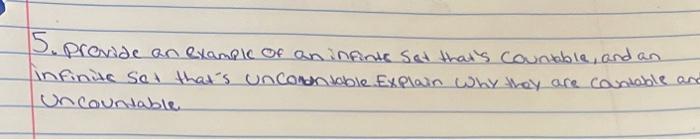 5. provide an example of an infinite set that's countable, and an
infinite set that's uncountable. Explain why they are countable and
uncountable.